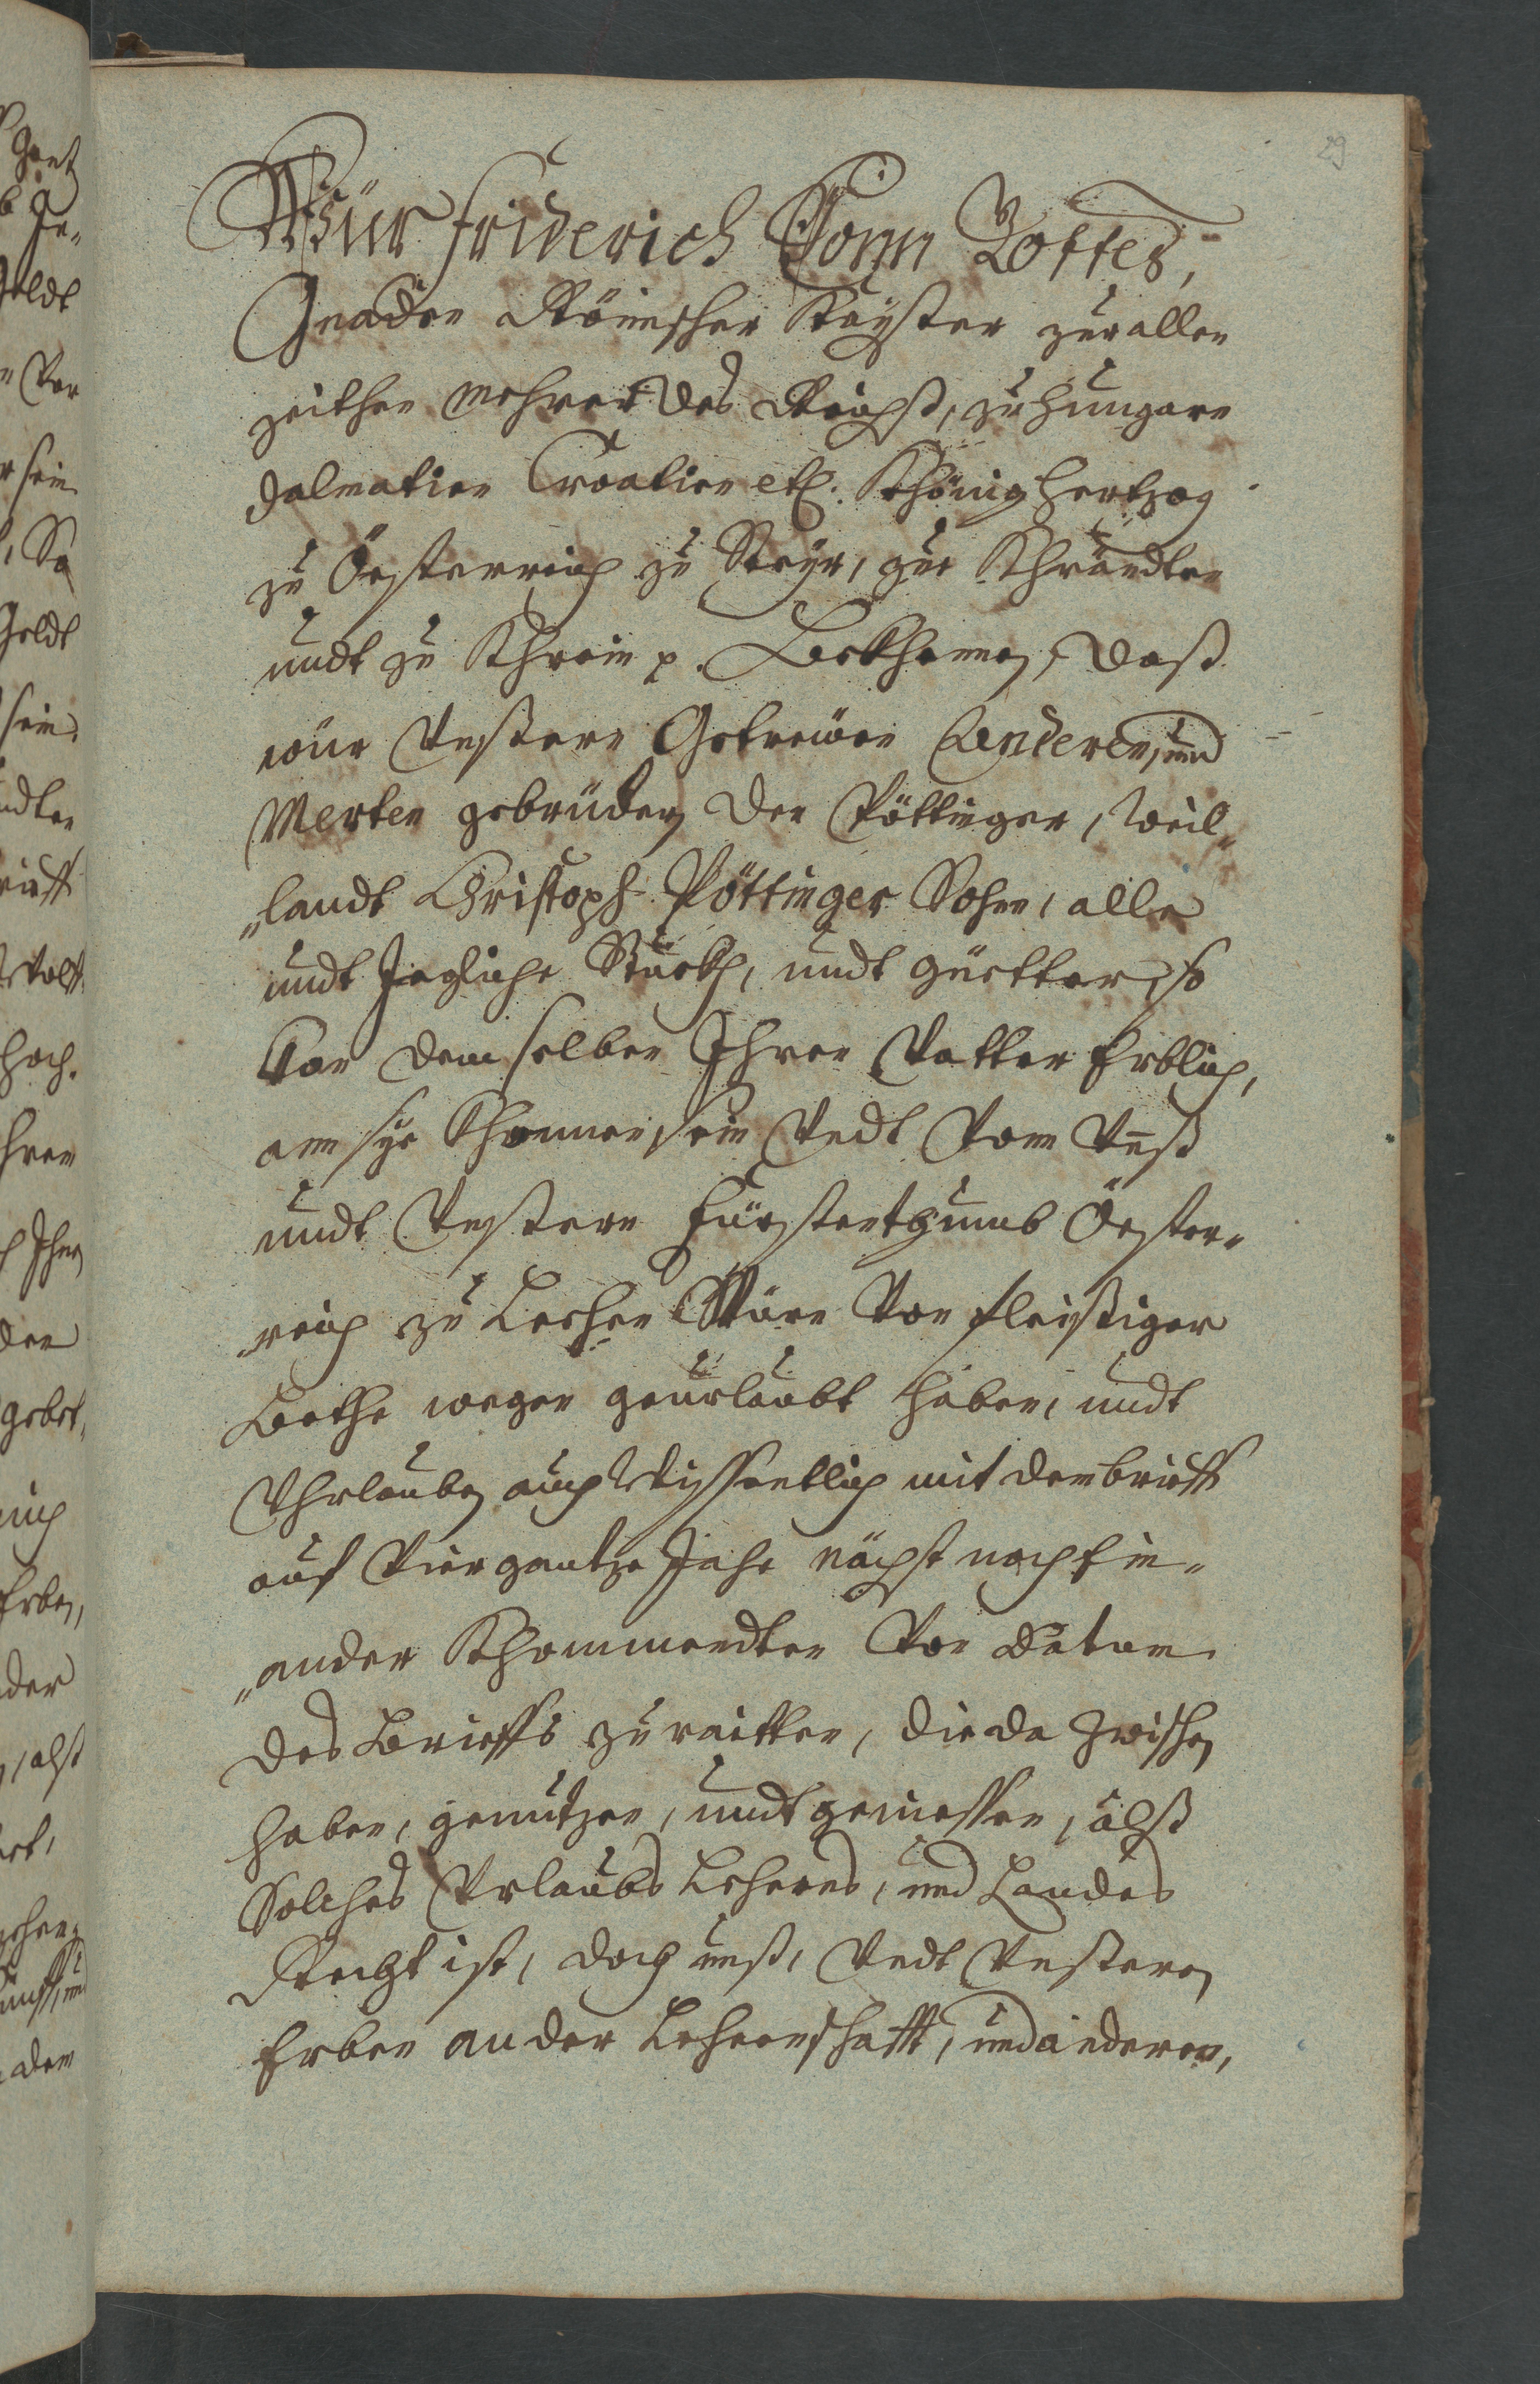 29
Wür Friderich Vonn Gottes,
Gnaden Römischer Kayßer zur allen
zeithen Mehrer des Reichß, zu Hungarn
Dalmatien Croatien etc. Khönig Hertzog
zu Össterreich zu Steyr, zue Khärndten
undt zu Khrain p. Bekhennen, daß
wür Unßern Getrewen Anderen, und
Merten gebrüdern den Pöttinger, Weil„
„landt Christoph Pöttinger Sohn, alle
undt Jegliche Stuckh, undt güetter, so
Von demselben Ihren Vatter Erblich,
ann sye khommen sein Undt Von Unß
undt Unßern Fürstenthumb Össter„
„reich zu Lechen Wären Von fleißiger
Bethe wegen geurlaubt haben, undt
Uhrlauben auch Wissentlich mit dem brieff
auf Vier gantze Jahr nächst nach Ein„
„ander Khommendten Von Datum
des Brieffs zu raitten, die da Zwischen
haben, genutzen, undt geniessen, alß
Solches Urlaubs Lehens, und Landes
Recht ist, doch unß, Undt Unßeren
Erben an der Lehenschafft, und anderen,